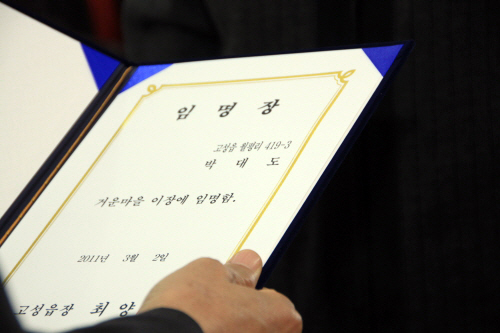 임명장
고성읍 월평리 419-3
박대도
거운마을 이장에 임명함.
2011년 3월 2일
고성읍장 최양